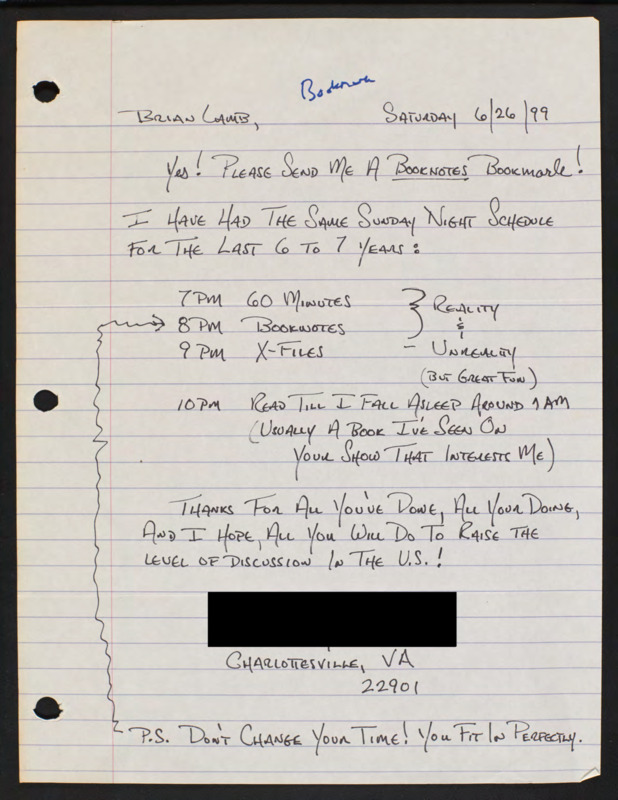 Bookmark
BRIAN LAMB, SATURDAY 6/26/99
Yes! PLEASE SEND ME A BOOKNOTES BOOKMARK!
I HAVE HAD THE SAME SUNDAY NIGHT SCHEDULE
FOR THE LAST 6 TO 7 YEARS:
7PM 60 MINUTES } REALITY
8PM BOOKNOTES &
9PM X-FILES – UNREALITY
(BUT GREAT FUN)
10PM READ TILL I FALL ASLEEP AROUND 1AM
(USUALLY A BOOK I'VE SEEN ON
YOUR SHOW THAT INTERESTS ME)
THANKS FOR ALL YOU'VE DONE, ALL YOUR DOING,
AND I HOPE, ALL YOU WILL DO TO RAISE THE
LEVEL OF DISCUSSION IN THE U.S.!
CHARLOTTESVILLE, VA
22901
P.S. DON'T CHANGE YOUR TIME! YOU FIT IN PERFECTLY.